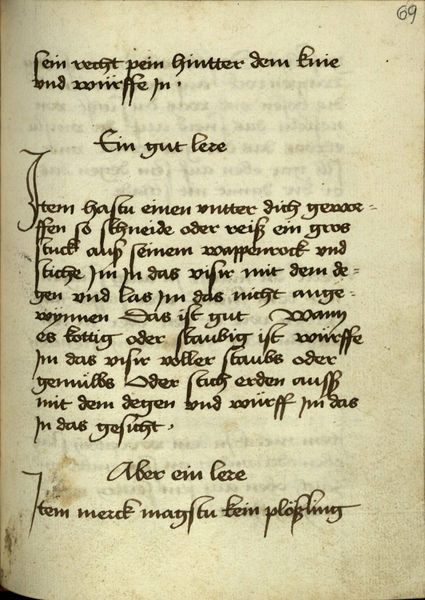 69
sein recht pein hintter dem knie
und würffe in ·
Ein gut lere
Item hastu einen untter dich gewor-
ffen so schneide oder reiß ein gros
stuck auß seinem wappenrock und
stiche im in das visir mit dem de-
gen und las im das nicht ange-
wynnen Das ist gut Wann
es kottig oder staubig ist würffe
im das visir voller staubs oder
gemülbs Oder stich erden auss
mit dem degen und würff im das
in das gesicht ·
Aber ein lere
Item merck magstu kein plößling